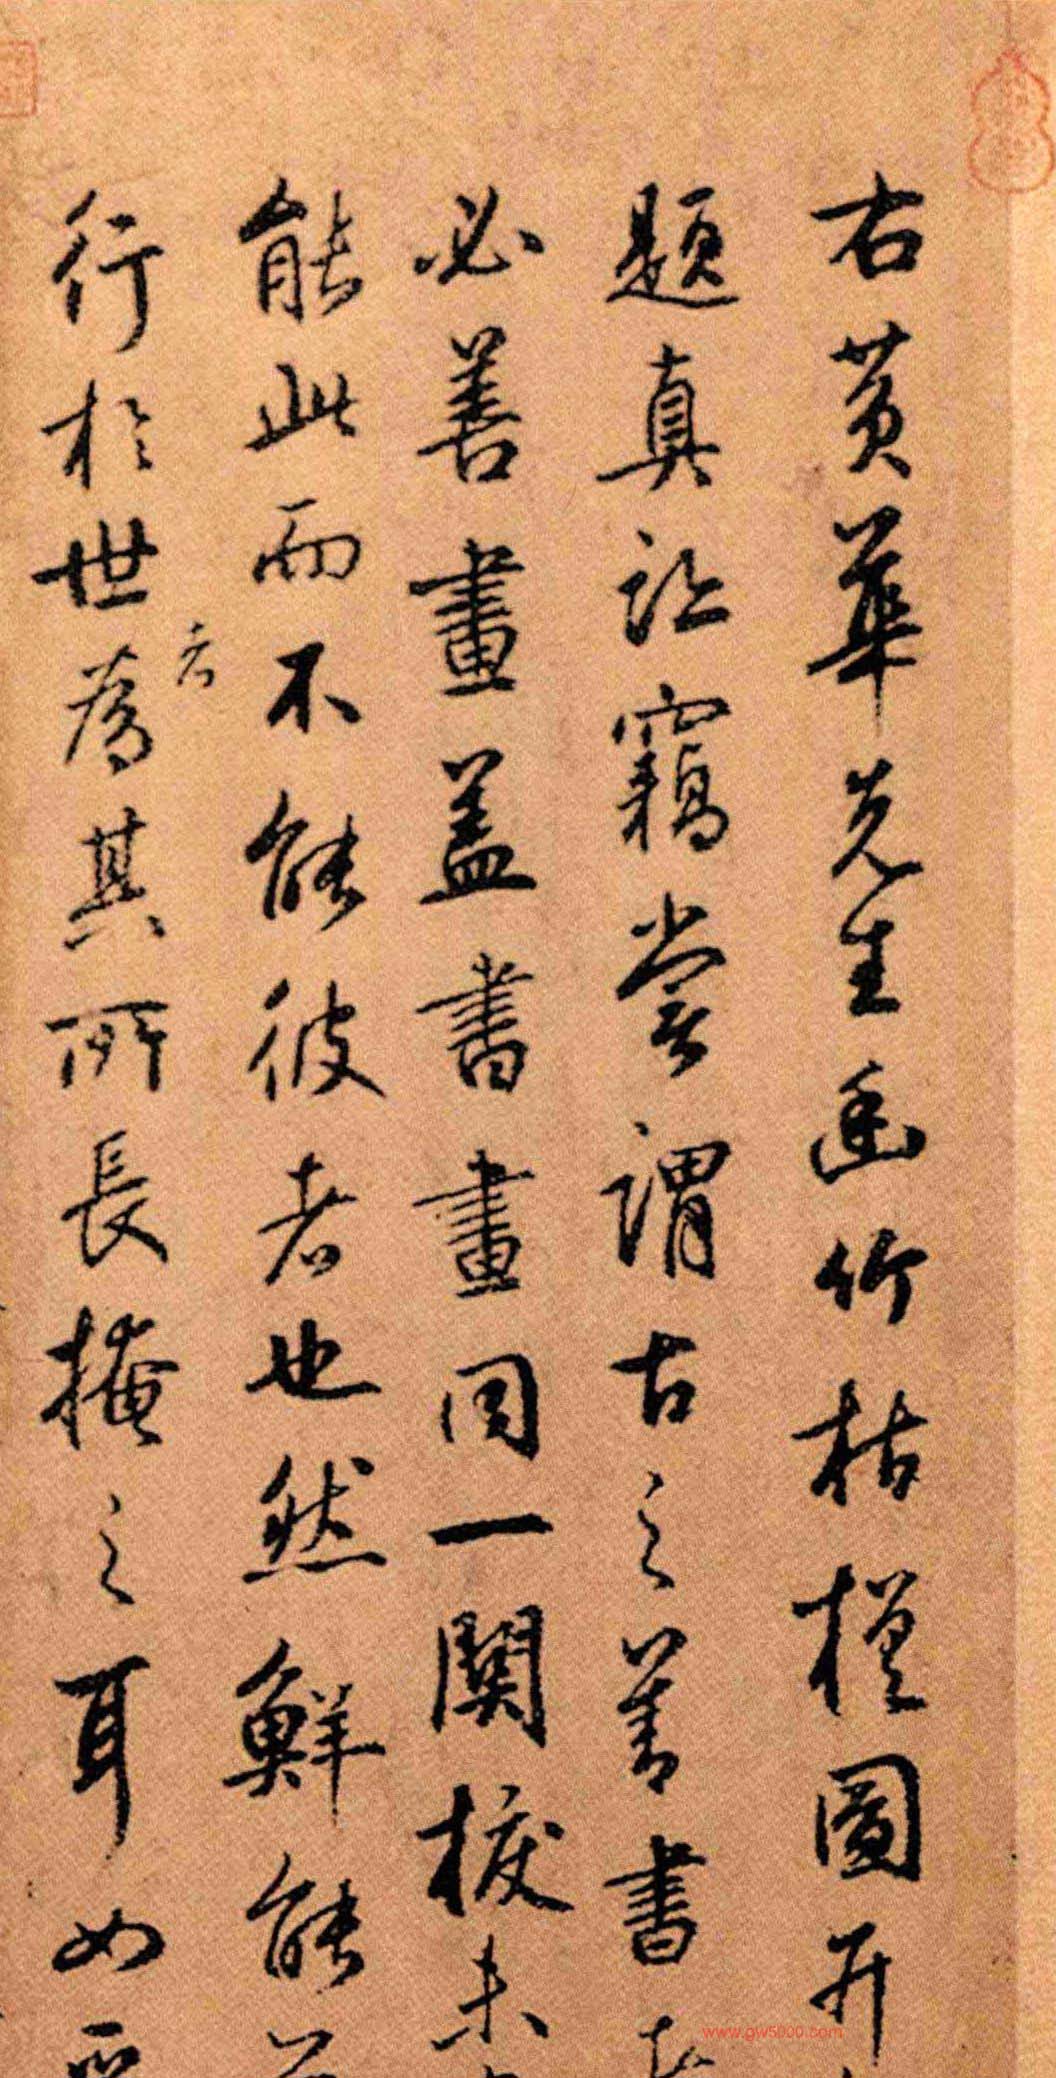 右黄華先生幽竹枯槎圖并
題真訟竊嘗謂古之善書者
必善畫蓋書畫同一關捩未
能此而不能彼者也然鮮能
行於世者為其所長掩之耳如
www.gw5000.com